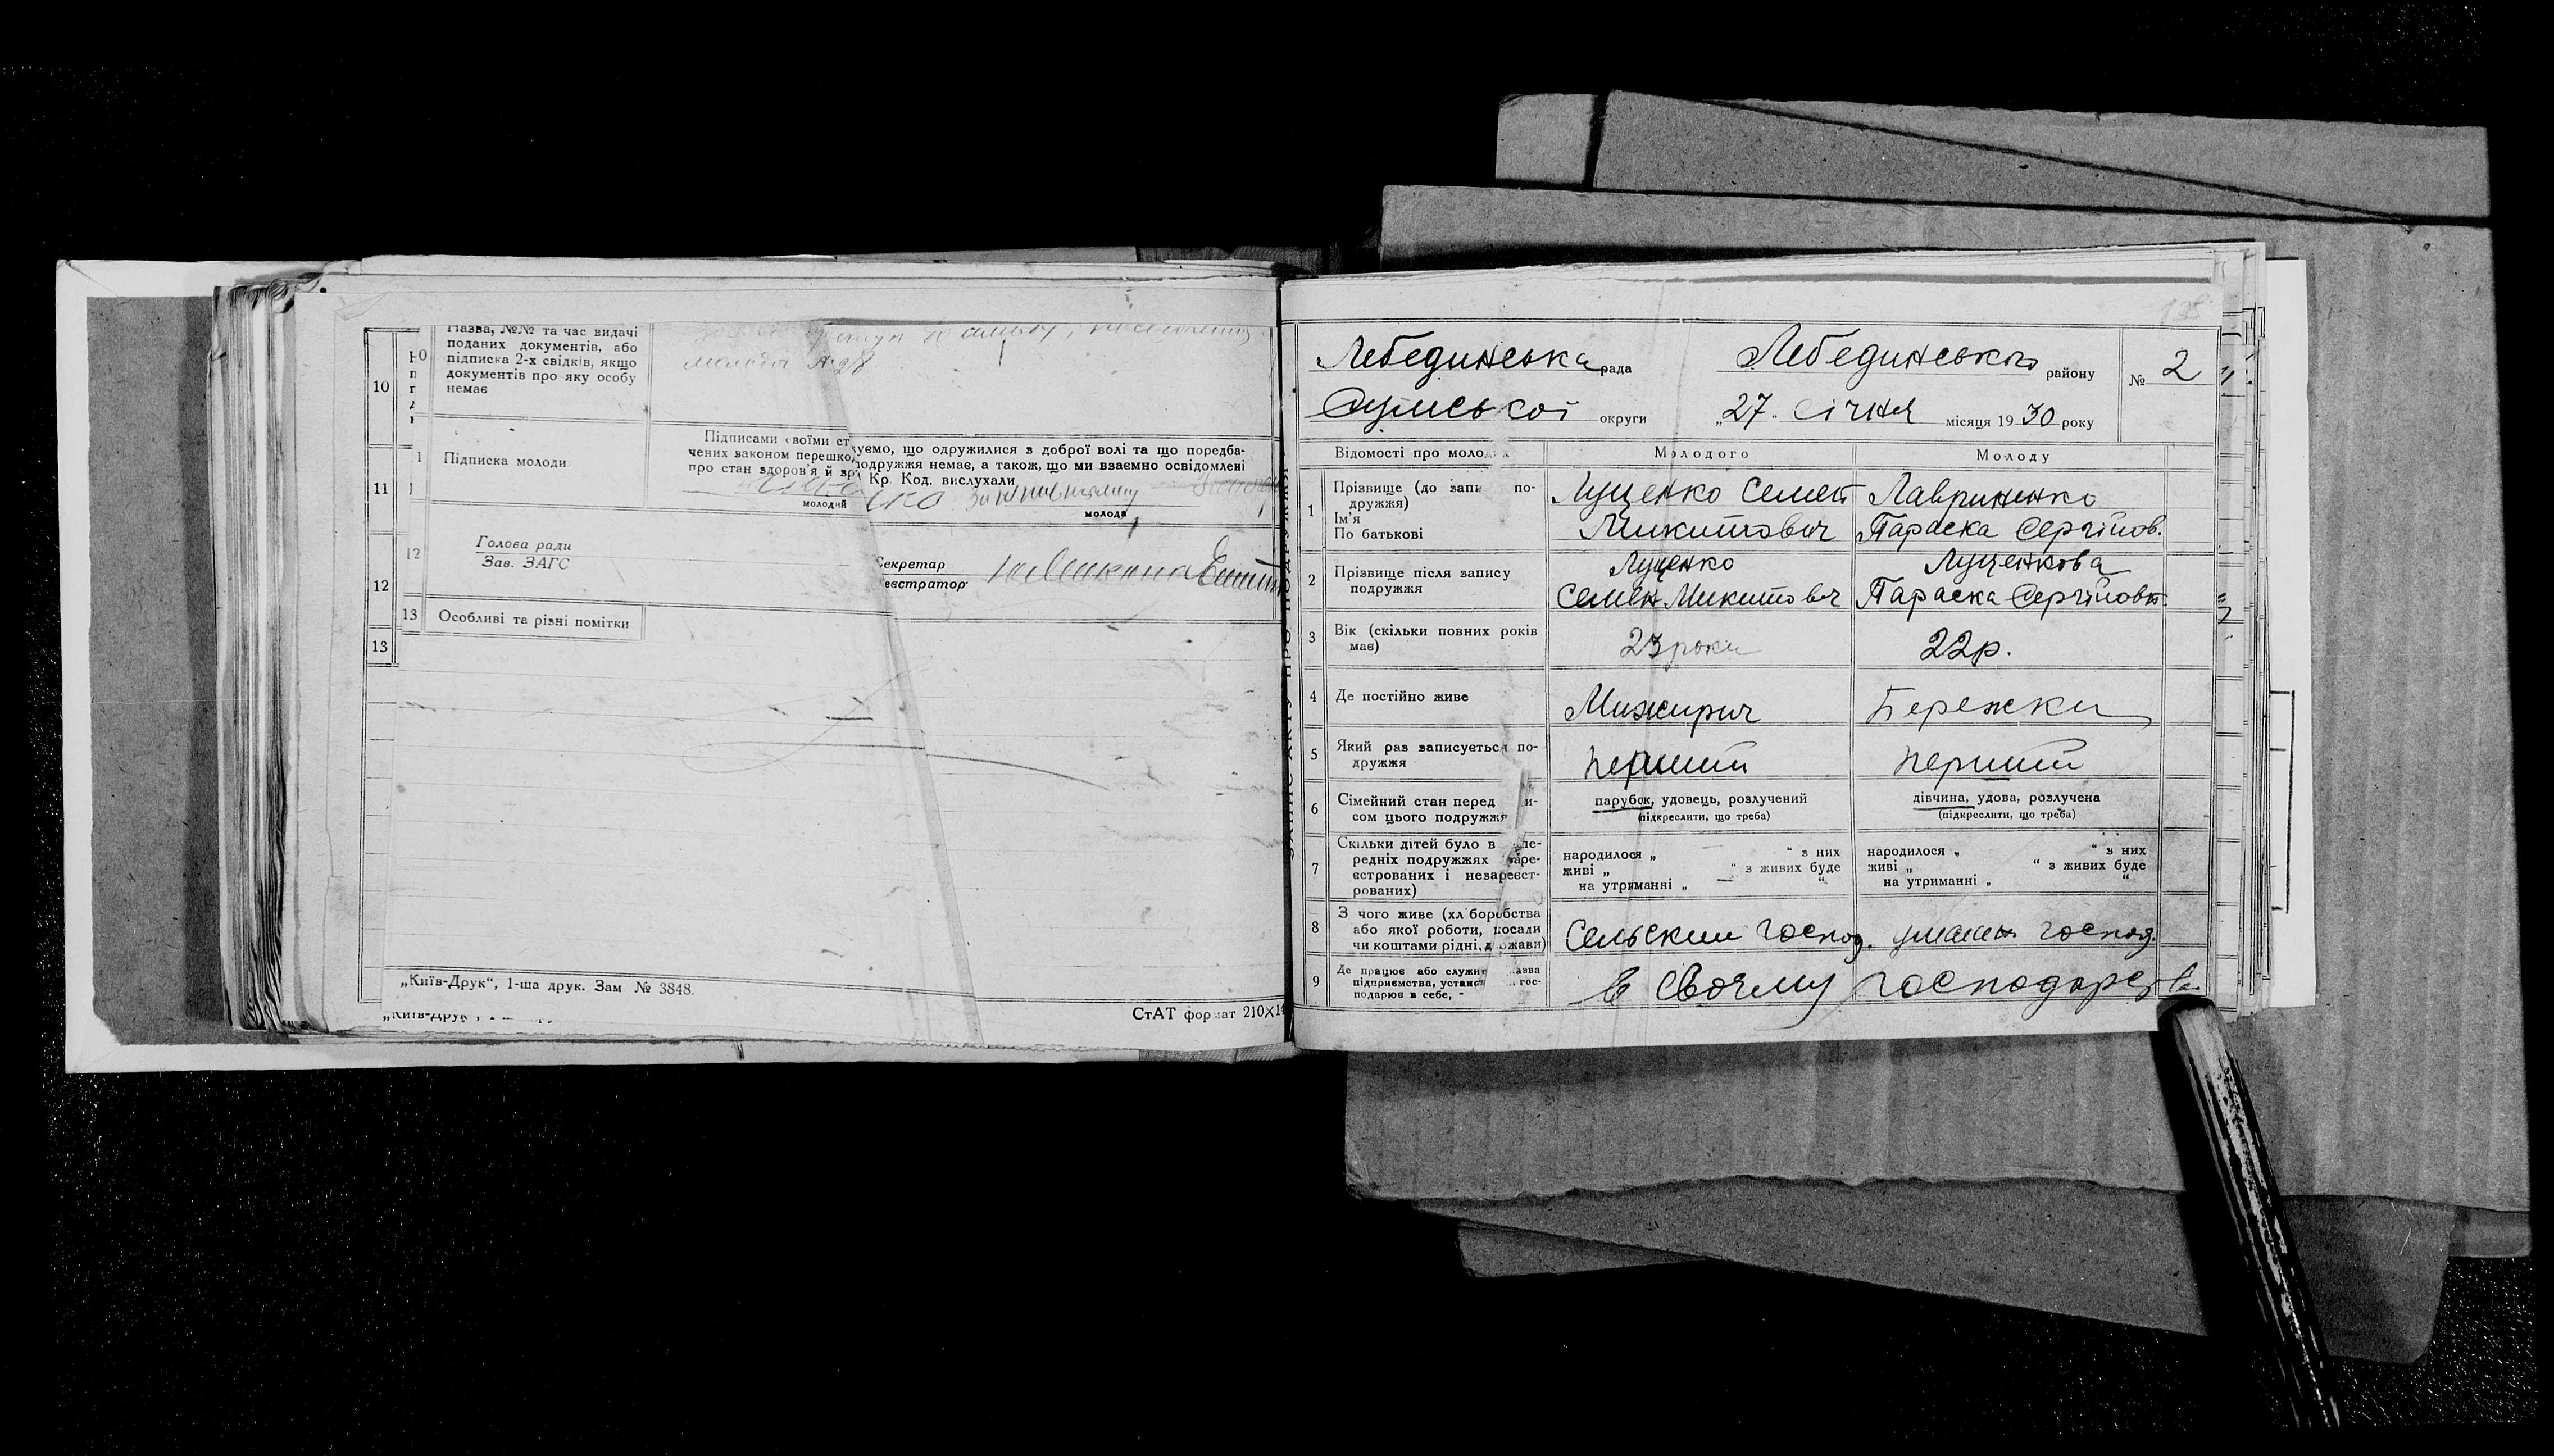 10
Назва, №№ та час видачі
поданих документів, або
підписка 2-х свідків, якщо
документів про яку особу
немає
11
Підписка молоди
Підписами своїми ст
уємо, що одружилися з доброї волі та що передба-
чених законом перешко
подружжя немає, а також, що ми взаємно освідомлені
про стан здоров'я й зр
Кр. Код. вислухали
молодий
молода
12
12
Голова ради
Зав. ЗАГС
Секретар
еєстратор
13
13
Особливі та різні помітки
„Київ-Друк“, 1-ша друк. Зам № 3848.
СтАТ формат 210×14
138
Лебединська рада Лебединського району № 2
Сумської округи „27. січня місяця 1930 року
Відомості про молод
Молодого
Молоду
1
Прізвище (до запи по-
дружжя)
Ім'я
По батькові
Луценко Семен
Микитович
Лавриненко
Параска Сергійов.
2
Прізвище після запису
подружжя
Луценко
Семен Микитович
Луценкова
Параска Сергійовн.
3
Вік (скільки повних років
має)
23 роки
22р.
4
Де постійно живе
Межирич
Бережки
5
Який раз записується по-
дружжя
перший
перший
6
Сімейний стан перед и-
сом цього подружжя
парубок, удовець, розлучений
(підкреслити, що треба)
дівчина, удова, розлучена
(підкреслити, що треба)
7
Скільки дітей було в пе-
редніх подружжях заре-
єстрованих і незареєст-
рованих)
народилося „ — “ з них
живі „ “ з живих буде
на утриманні „ — “
народилося „ “ з них
живі „ “ з живих буде
на утриманні „ “
8
З чого живе (хліборобства
або якої роботи, посади
чи коштами рідні, держави)
Сельским господ.
господ.
9
Де працює або служи назва
підприємства, устано гос-
подарює в себе, -
в своєму господарстві